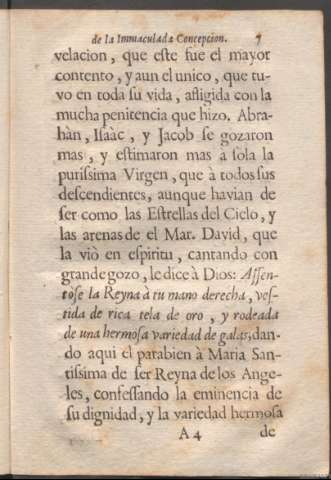 de la Inmaculada Concepcion. 7
velacion, que este fue el mayor
contento, y aun el unico, que tu-
vo en toda su vida, afligida con la
mucha penitencia que hizo. Abra-
hàn, Isaàc, y Jacob se gozaron
mas, y estimaron mas à sola la
purissima Virgen, que à todos sus
descendientes, aunque havian de
ser como las Estrellas del Cielo, y
las arenas de el Mar. David, que
la viò en espiritu, cantando con
grande gozo, le dice à Dios: Assen-
tòse la Reyna à tu mano derecha, ves-
tida de rica tela de oro, y rodeada
de una hermosa variedad de galas, dan-
do aqui el parabien à Maria San-
tissima de ser Reyna de los Ange-
les, confessando la eminencia de
su dignidad, y la variedad hermosa
A 4 de